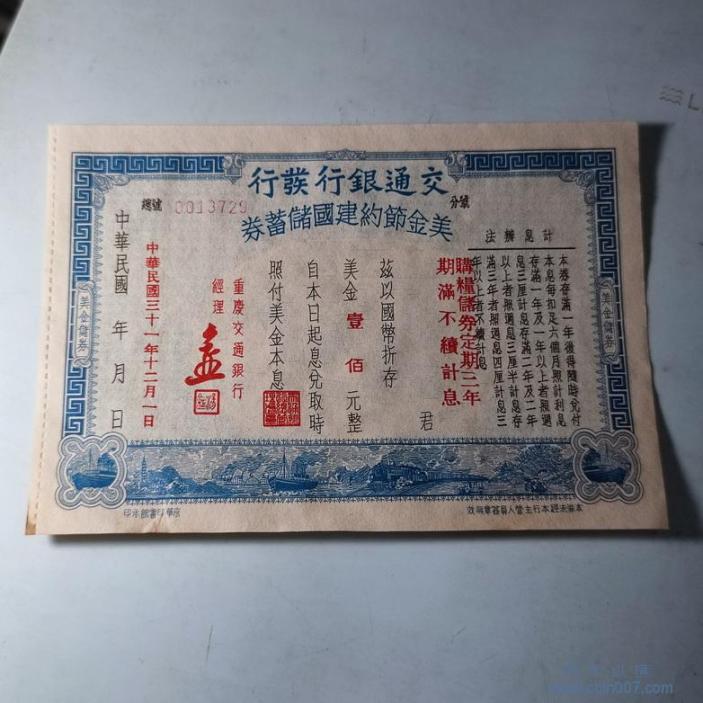 交通銀行發行
美金節約建國儲蓄券
分號
總號 0013729
計息辦法
本券存滿一年後得隨時兌付
本息每扣足六個月照計利息
存滿一年及一年以上者照週
息三厘計息存滿二年及二年
以上者照週息三厘半計息存
滿三年者照週息四厘計息三
年以上者不續計息
購糧儲券定期三年
期滿不續計息
茲以國幣折存 君
美金壹佰元整
自本日起息兌取時
照付美金本息
重慶交通銀行
經理
中華民國三十一年十二月一日
中華民國 年 月 日
美金儲券
美金儲券
本券未經本行主管人員簽章無效
www.coin007.com